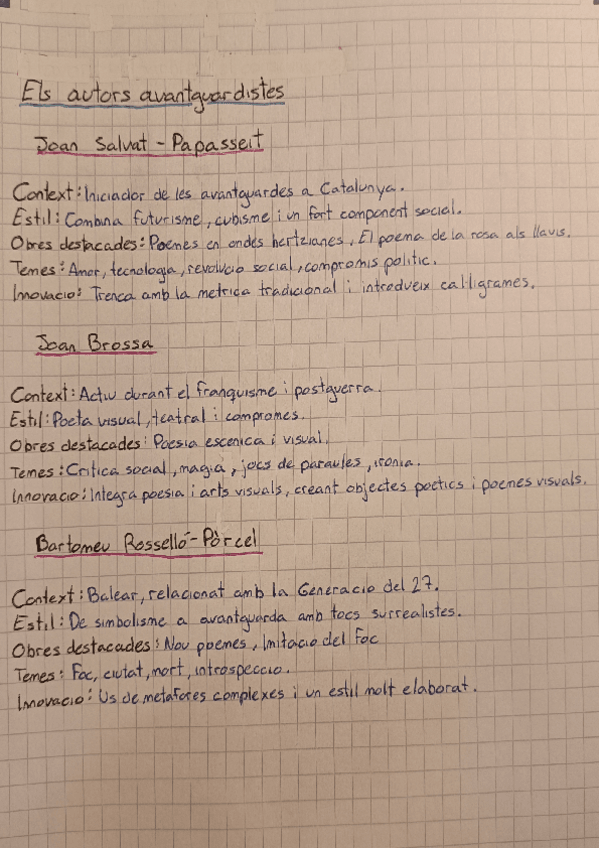 Els autors avantguardistes
Joan Salvat - Papasseit
Context: Iniciador de les avantguardes a Catalunya.
Estil: Combina futurisme, cubisme i un fort component social.
Obres destacades: Poemes en ondes hertzianes, El poema de la rosa als llavis.
Temes: Amor, tecnologia, revolucio social, compromis politic.
Innovacio: Trenca amb la metrica tradicional i introdueix cal·ligrames.
Joan Brossa
Context: Actiu durant el franquisme i postguerra.
Estil: Poeta visual, teatral i compromes.
Obres destacades: Poesia escenica i visual.
Temes: Critica social, magia, jocs de paraules, ironia.
Innovacio: Integra poesia i arts visuals, creant objectes poetics i poemes visuals.
Bartomeu Rosselló-Pòrcel
Context: Balear, relacionat amb la Generacio del 27.
Estil: De simbolisme a avantguarda amb tocs surrealistes.
Obres destacades: Nou poemes, Imitacio del Foc
Temes: Foc, ciutat, mort, introspeccio.
Innovacio: Us de metafores complexes i un estil molt elaborat.